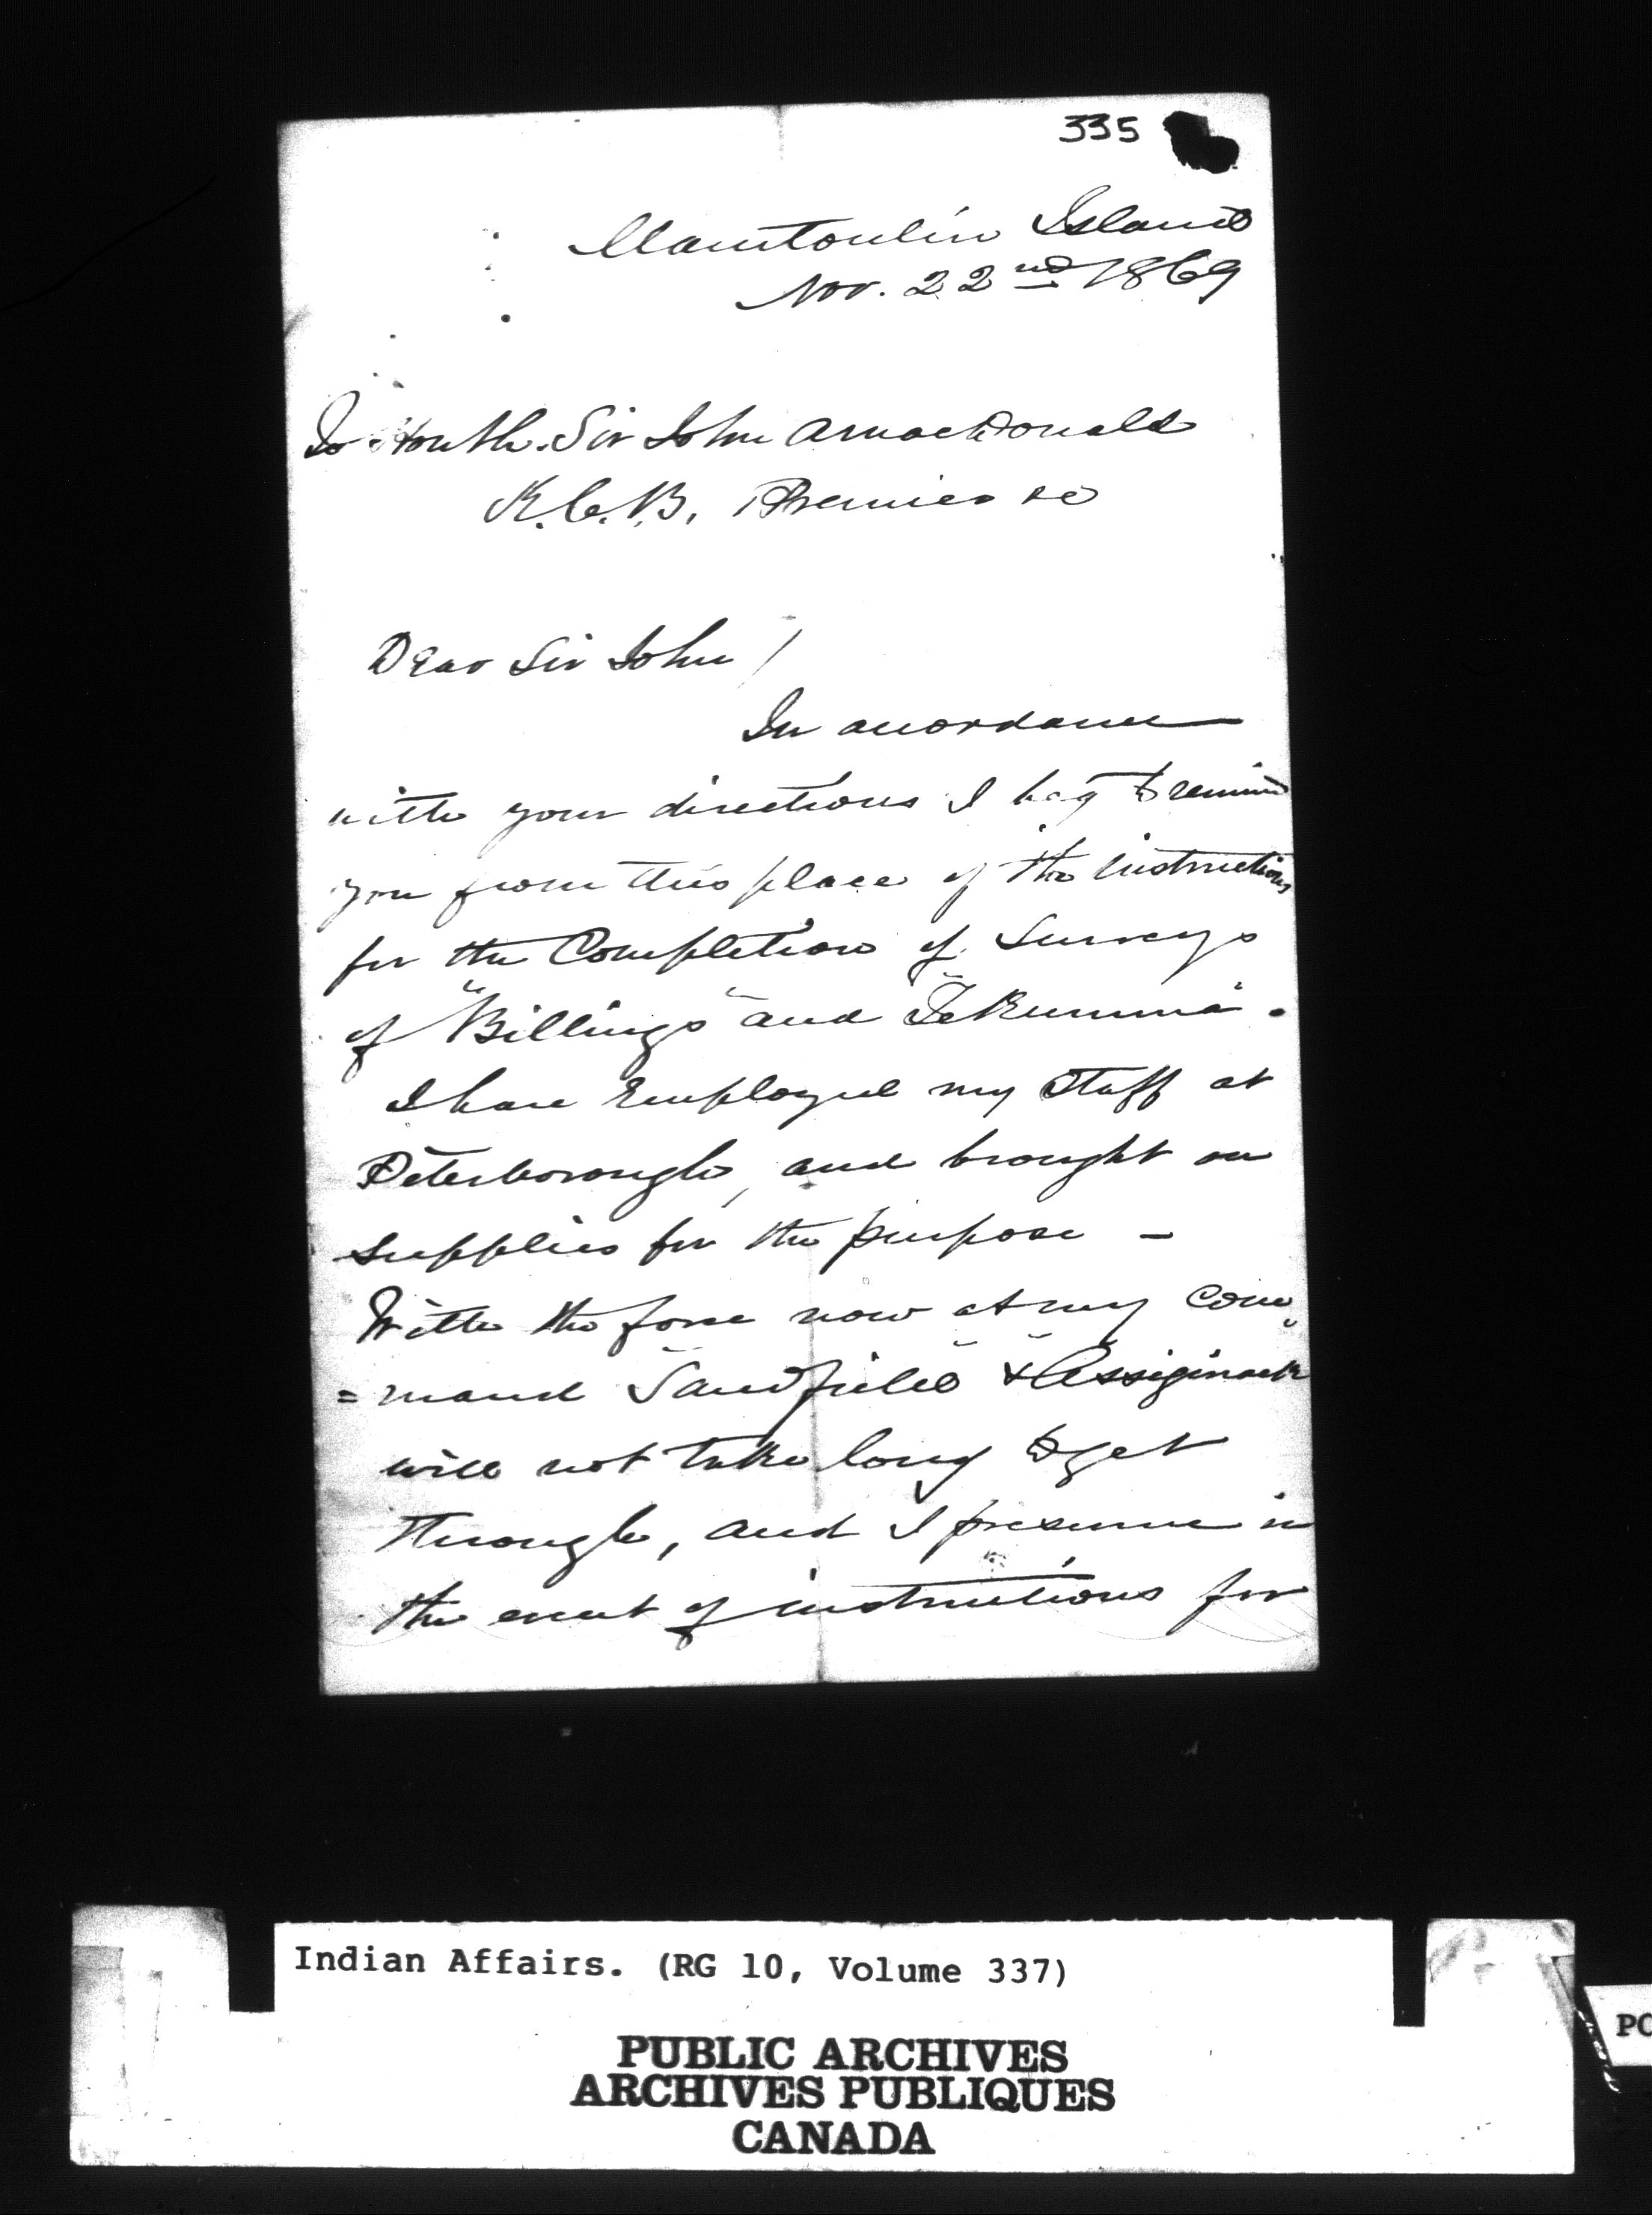 335
Manitoulin Island
Nov. 22nd 1869
To Honble. Sir John A MacDonald
K.C.B. Premier &c
Dear Sir John /
In accordance
with your directions I beg to remind
you from this place of the instructions
for the Completion of Surveys
of "Billings" and "Tekumma".
I have Employed my Staff at
Peterborough, and brought on
supplies for the purpose –
With the force now at my Com
= mand "Sandfield" & "Assiginack
will not take long to get
through, and I presume in
the event of instructions for
Indian Affairs. (RG 10, Volume 337)
PUBLIC ARCHIVES
ARCHIVES PUBLIQUES
CANADA
PO